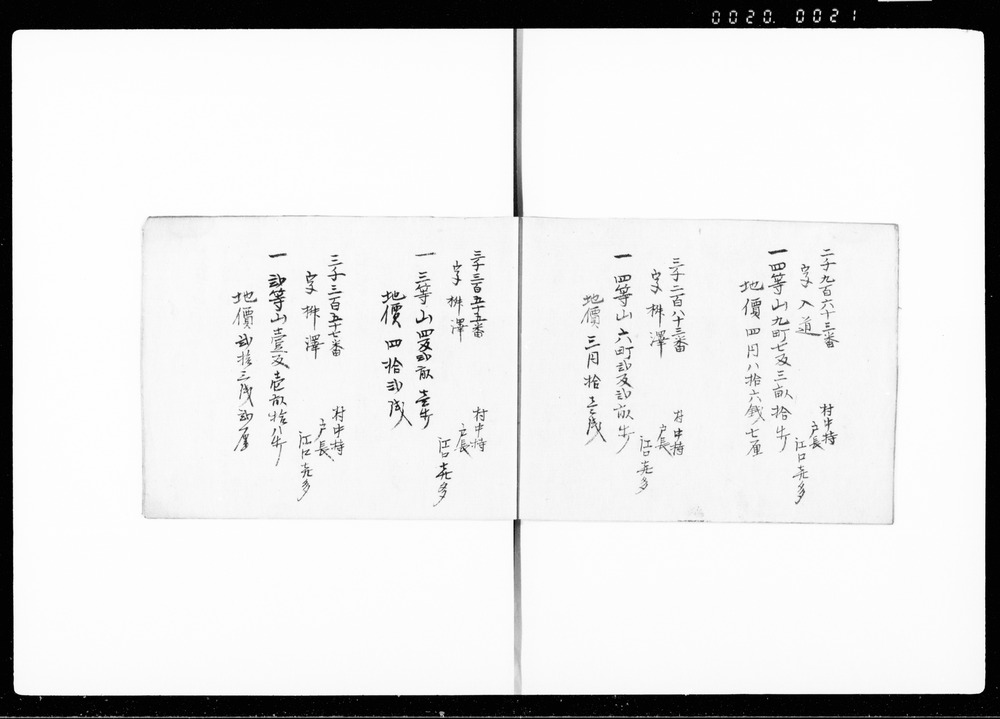 0020. 0021
二千九百六十三番
字 入道
村中持
戸長
江口 㐂多
一 四等山九町七反三畝拾歩
地價 四円八拾六銭七厘
三千二百八十三番
字 桝澤
村中持
戸長
江口 㐂多
一 四等山六町弐反弐畝歩
地價 三円拾壱銭
三千三百五十五番
字 桝澤
村中持
戸長
江口 㐂多
一 三等山四反弐畝壱歩
地價 四拾弐銭
三千三百五十七番
字 桝澤
村中持
戸長
江口 㐂多
一 弐等山壹反壱畝拾八歩
地價 弐拾三銭弐厘